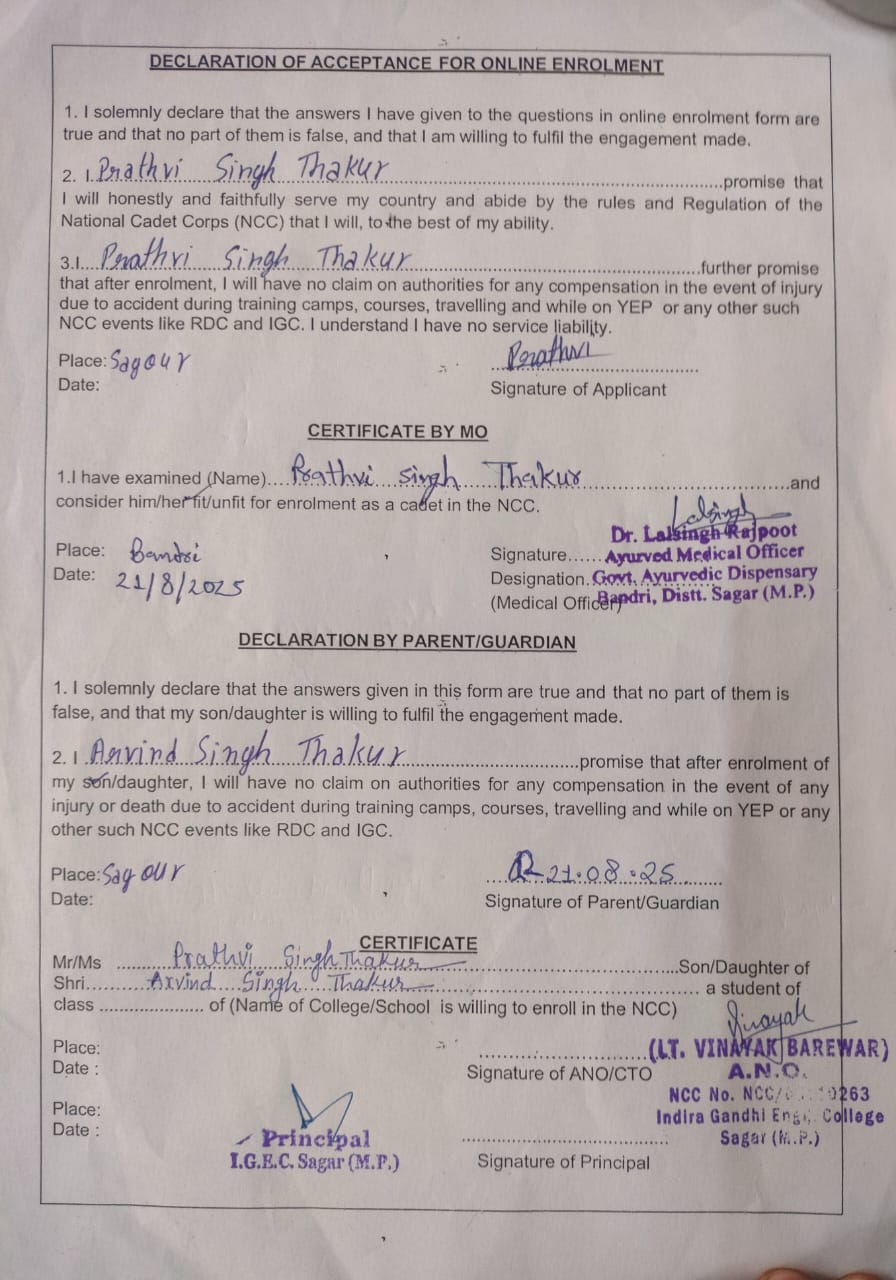 DECLARATION OF ACCEPTANCE FOR ONLINE ENROLMENT
1. I solemnly declare that the answers I have given to the questions in online enrolment form are
true and that no part of them is false, and that I am willing to fulfil the engagement made.
2. I. Prathvi Singh Thakur ..........promise that
I will honestly and faithfully serve my country and abide by the rules and Regulation of the
National Cadet Corps (NCC) that I will, to the best of my ability.
3.I.... Prathvi Singh Thakur ..........further promise
that after enrolment, I will have no claim on authorities for any compensation in the event of injury
due to accident during training camps, courses, travelling and while on YEP or any other such
NCC events like RDC and IGC. I understand I have no service liability.
Place: Sagour
Prathvi
Date:
Signature of Applicant
CERTIFICATE BY MO
1.I have examined (Name).... Prathvi singh Thakur ..........and
consider him/her fit/unfit for enrolment as a cadet in the NCC.
Lalsingh
Dr. Lalsingh Rajpoot
Place: Bandri
Signature...... Ayurved Medical Officer
Date: 21/8/2025
Designation. Govt. Ayurvedic Dispensary
(Medical Officer) Bandri, Distt. Sagar (M.P.)
DECLARATION BY PARENT/GUARDIAN
1. I solemnly declare that the answers given in this form are true and that no part of them is
false, and that my son/daughter is willing to fulfil the engagement made.
2. I Arvind Singh Thakur ..........promise that after enrolment of
my son/daughter, I will have no claim on authorities for any compensation in the event of any
injury or death due to accident during training camps, courses, travelling and while on YEP or any
other such NCC events like RDC and IGC.
Place: Sagour
21.08.25
Date:
Signature of Parent/Guardian
CERTIFICATE
Mr/Ms .......... Prathvi Singh Thakur ..........Son/Daughter of
Shri.......... Arvind Singh Thakur .......... a student of
class .................... of (Name of College/School is willing to enroll in the NCC)
Vinayak
Place:
(LT. VINAYAK BAREWAR)
Date :
Signature of ANO/CTO
A.N.O.
NCC No. NCC/ 0263
Place:
Indira Gandhi Engg. College
Date :
Principal
Sagar (M.P.)
I.G.E.C. Sagar (M.P.)
Signature of Principal